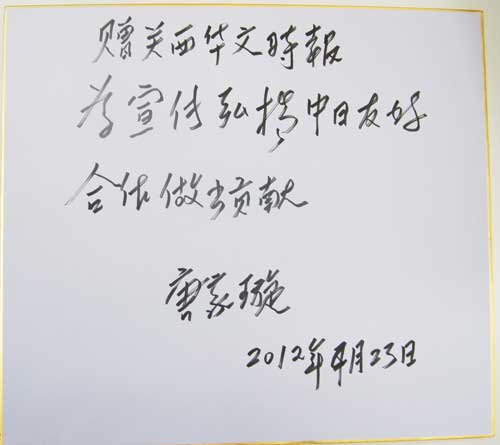 赠关西华文時報
为宣传弘揚中日友好
合作做出贡献
唐家璇
2012年4月23日